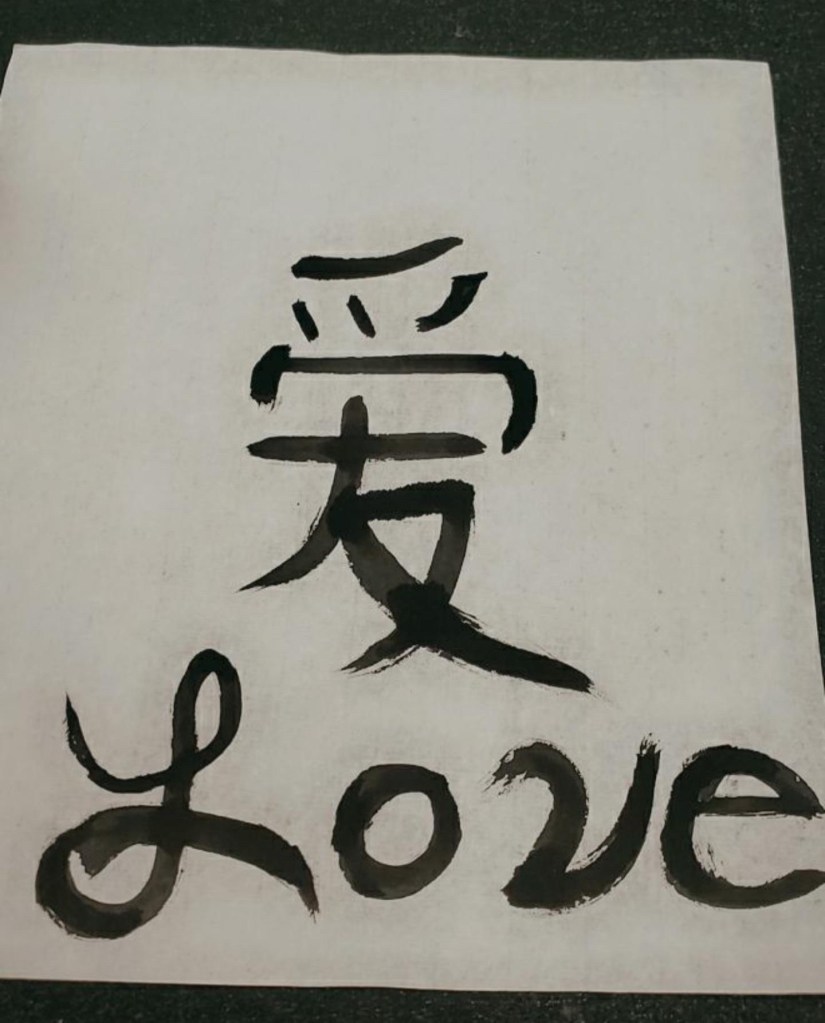 爱
Love